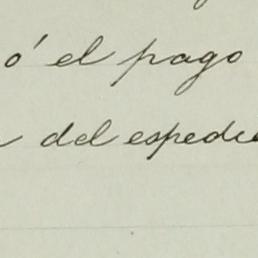 ó el pago
del espedie